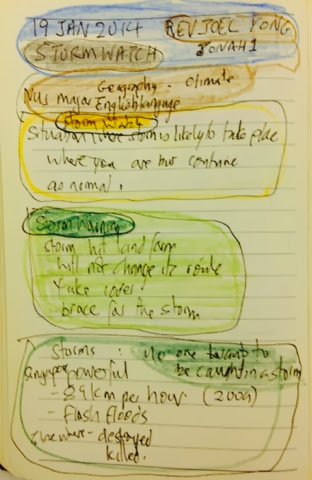 19 JAN 2014 REV JOEL YONG
STORMWATCH JONAH 1
Geography - climate
NUS major English language
Storm watch
Situation where storm is likely to take place
where you are but continue
as normal.
Storm Warning
Storm hit land form
will not change its route
Take cover
brace for the storm
Storms : No one wants to
be caught in a storm
Singapore powerful
- 84 km per hour (2009)
- flash floods
Elsewhere - destroyed
killed.